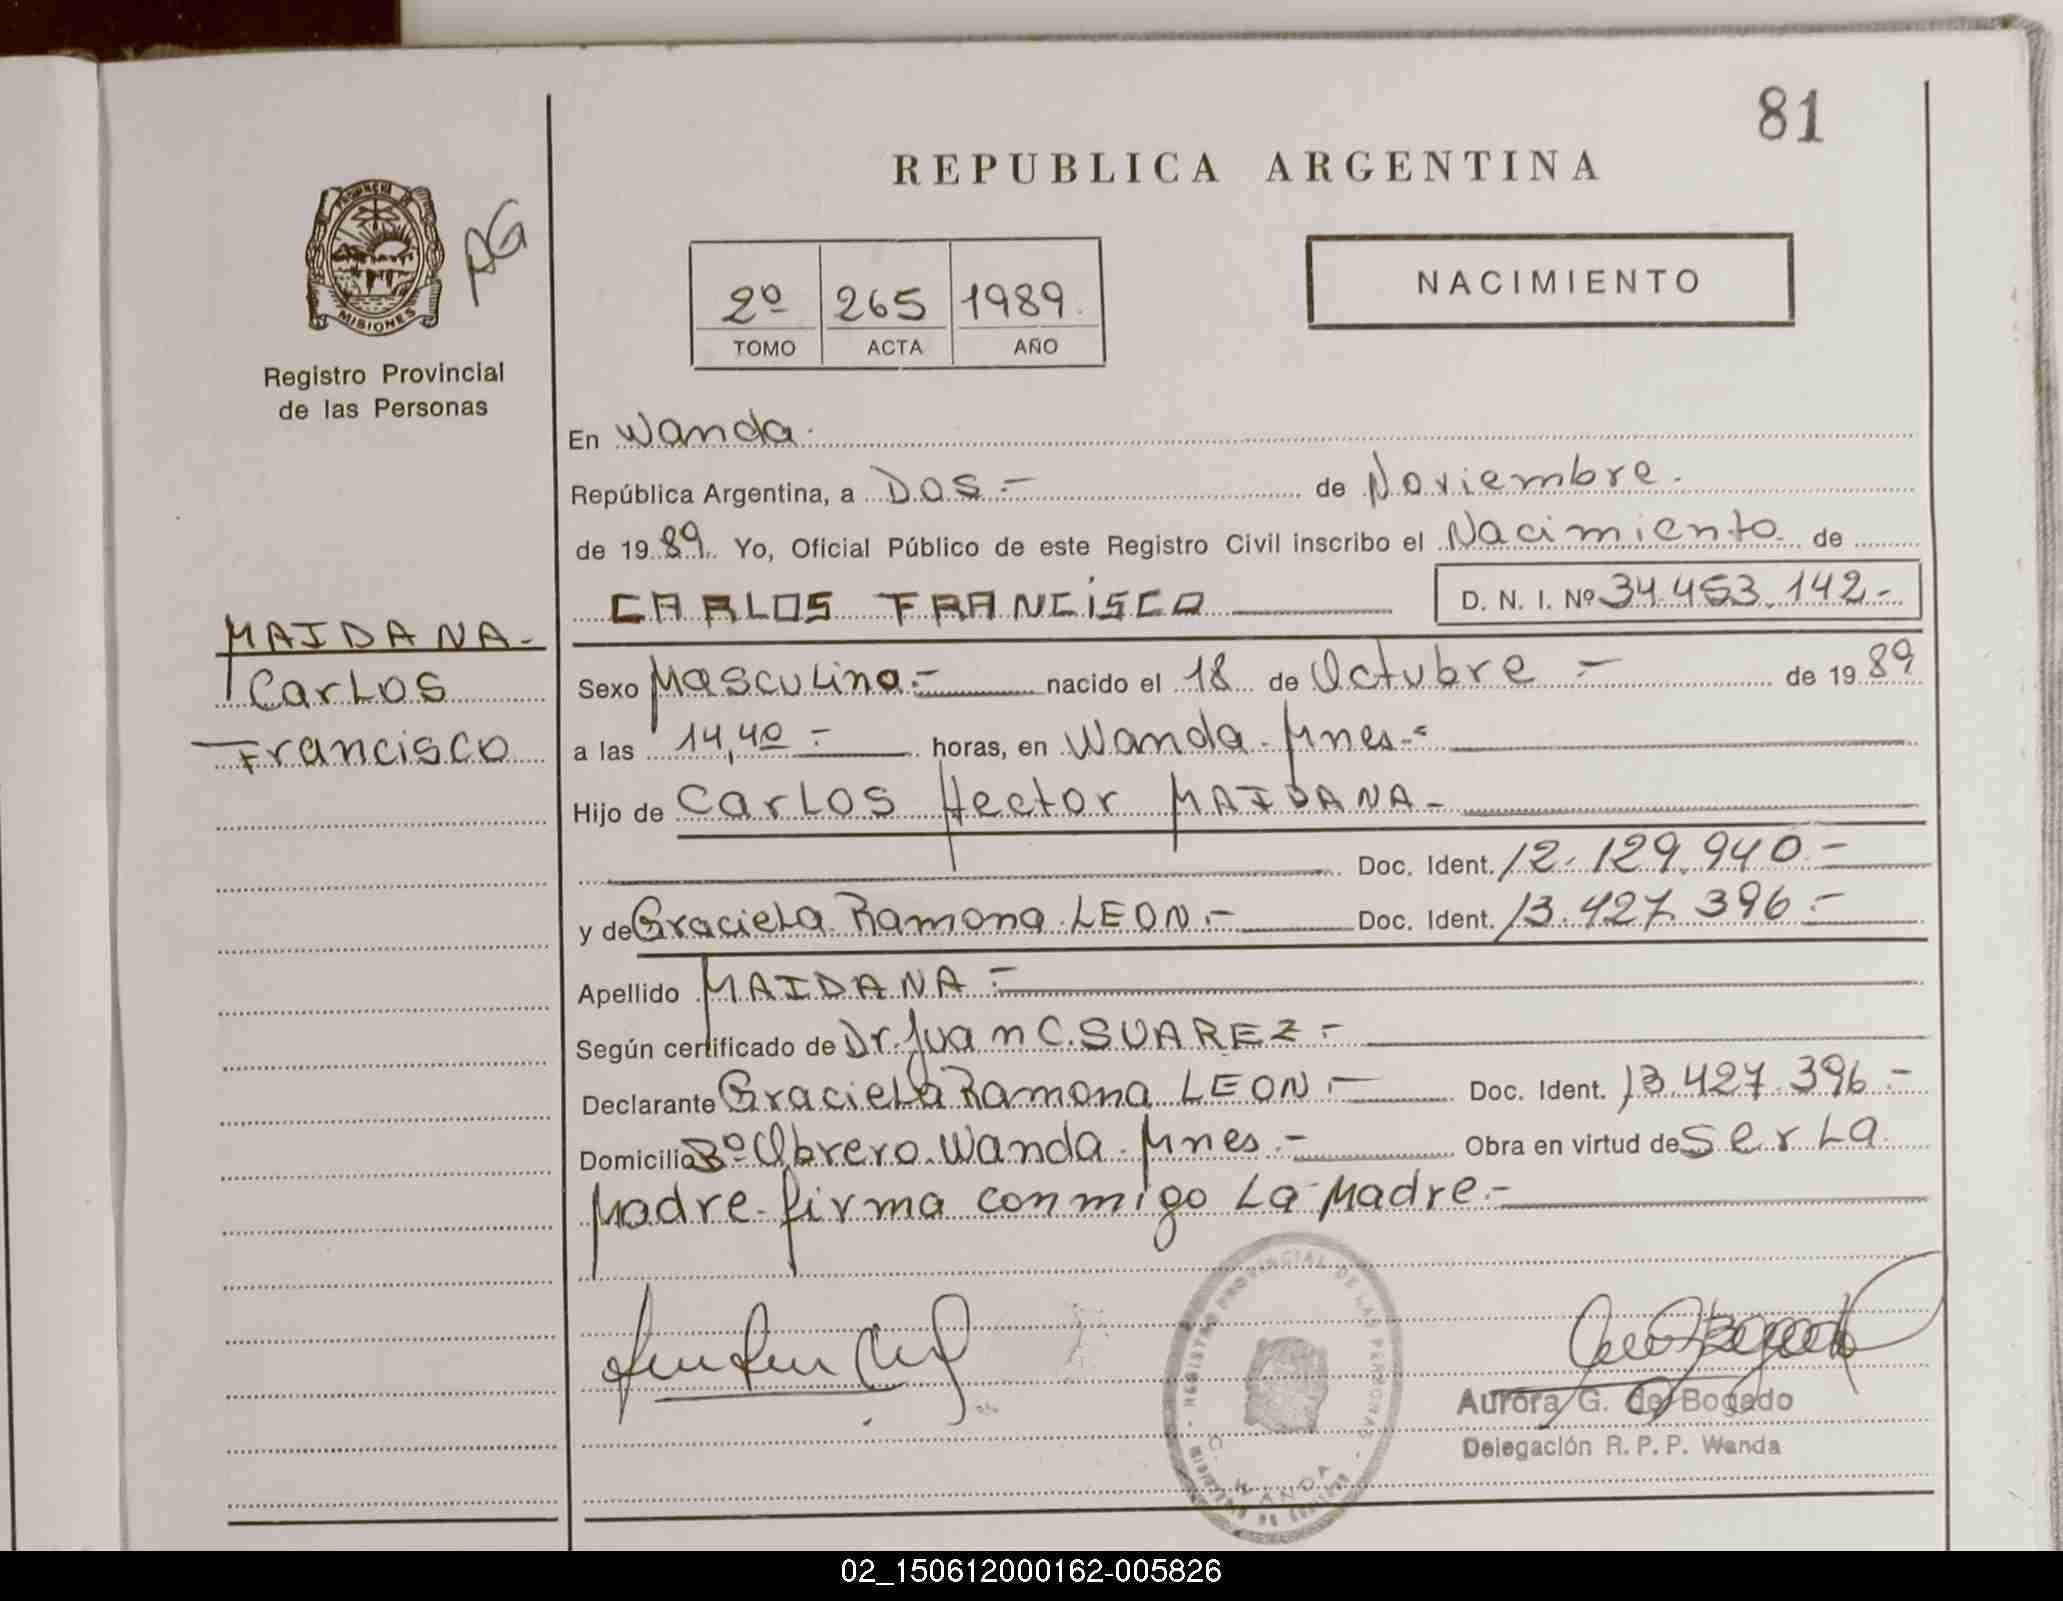 81
REPUBLICA ARGENTINA
PROVINCIA
MISIONES
AG
Registro Provincial
de las Personas
2º 265 1989.
TOMO ACTA AÑO
NACIMIENTO
MAIDANA-
Carlos
Francisco
En Wanda.
República Argentina, a Dos.- de Noviembre.
de 1989. Yo, Oficial Público de este Registro Civil inscribo el Nacimiento de
CARLOS FRANCISCO D. N. I. Nº 34.453.142-
Sexo Masculino.- nacido el 18 de Octubre - de 1989
a las 14,40 - horas, en Wanda. Mnes-
Hijo de Carlos Hector MAIDANA-
Doc. Ident. 12.129.940.-
y de Graciela Ramona LEON.- Doc. Ident. 13.427.396.-
Apellido MAIDANA.-
Según certificado de Dr. Juan C. SUAREZ.-
Declarante Graciela Ramona LEON.- Doc. Ident. 13.427.396.-
Domicilio Bº Obrero. Wanda. Mnes.- Obra en virtud de Ser La
Madre. firma conmigo La Madre.-
REGISTRO PROVINCIAL DE LAS PERSONAS
WANDA
MINISTERIO DE GOBIERNO
Aurora G. de Bogado
Delegación R. P. P. Wanda
02_150612000162-005826